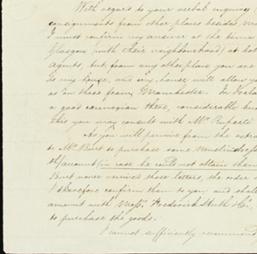 With regard to your verbal enquiry
consignments from other places besides
I must confirm my answer at the same
Glasgow (with their neighbourhood) at
Agents, but from any other place you are
to my house, and my house will allow you
as on those from Manchester. In
a good connexion there, considerable
this you may consult with Mr
As you will perceive from the
to Mr Burt to purchase some
amount in case he could not attain them
Burt never received those letters, the order
I therefore confirm them to you, and shall
amount with Messrs Frederick Huth & Co.
to purchase the goods.
I cannot sufficiently recommend